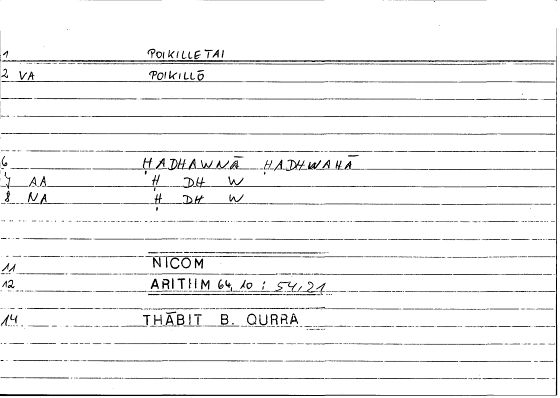 1 POIKILLETAI
2 VA POIKILLŌ
6 ḤADHAWNĀ ḤADHWAHĀ
7 AA Ḥ DH W
8 NA Ḥ DH W
11 NICOM
12 ARITHM 64, 10 : 54,21
14 THĀBIT B. QURRA